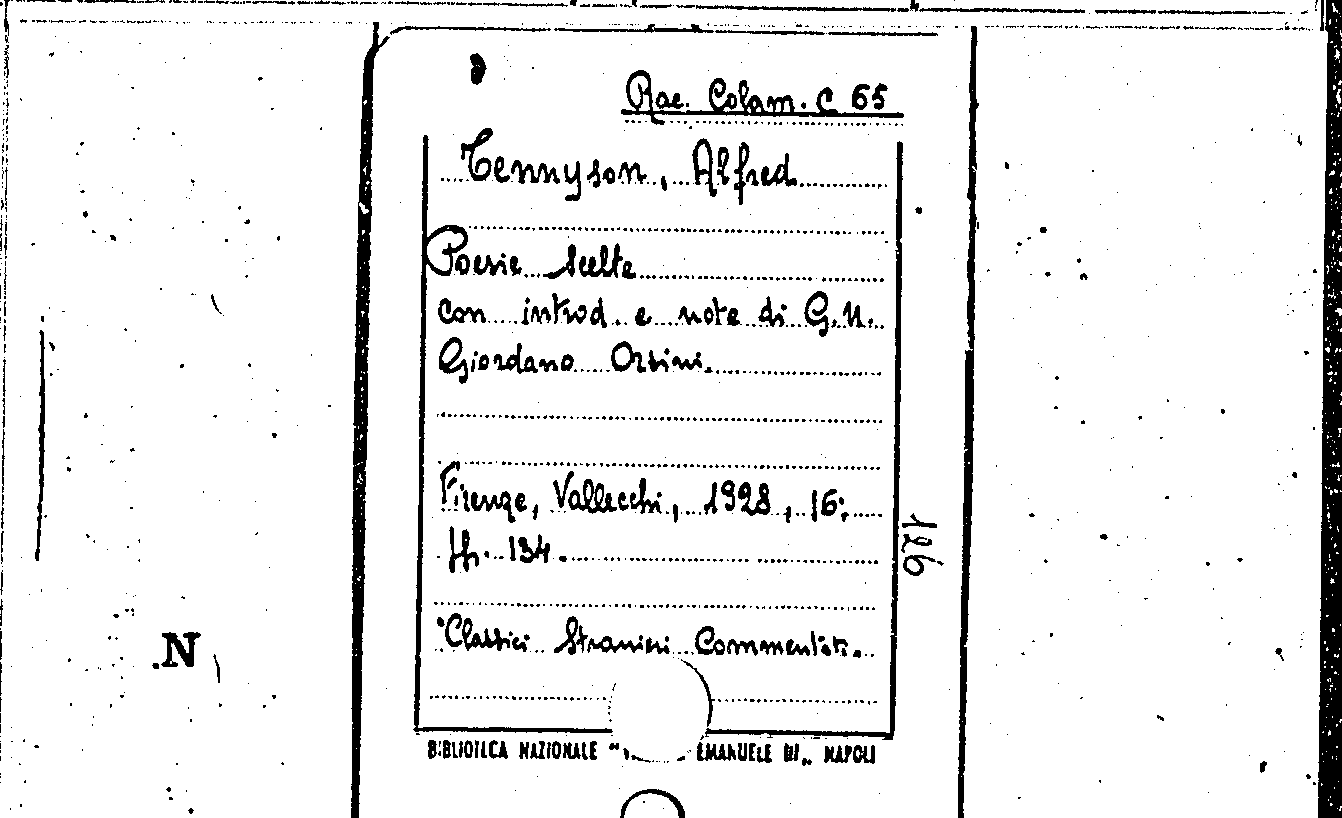 Rac. Colam. C 65
Tennyson, Alfred.
Poesie scelte
con introd. e note di G.N.
Giordano Orsini.
Firenze, Vallecchi, 1928, 16:
pp. 134.
Classici Stranieri Commentati.
126
.N
BIBLIOTECA NAZIONALE " EMANUELE III„ NAPOLI